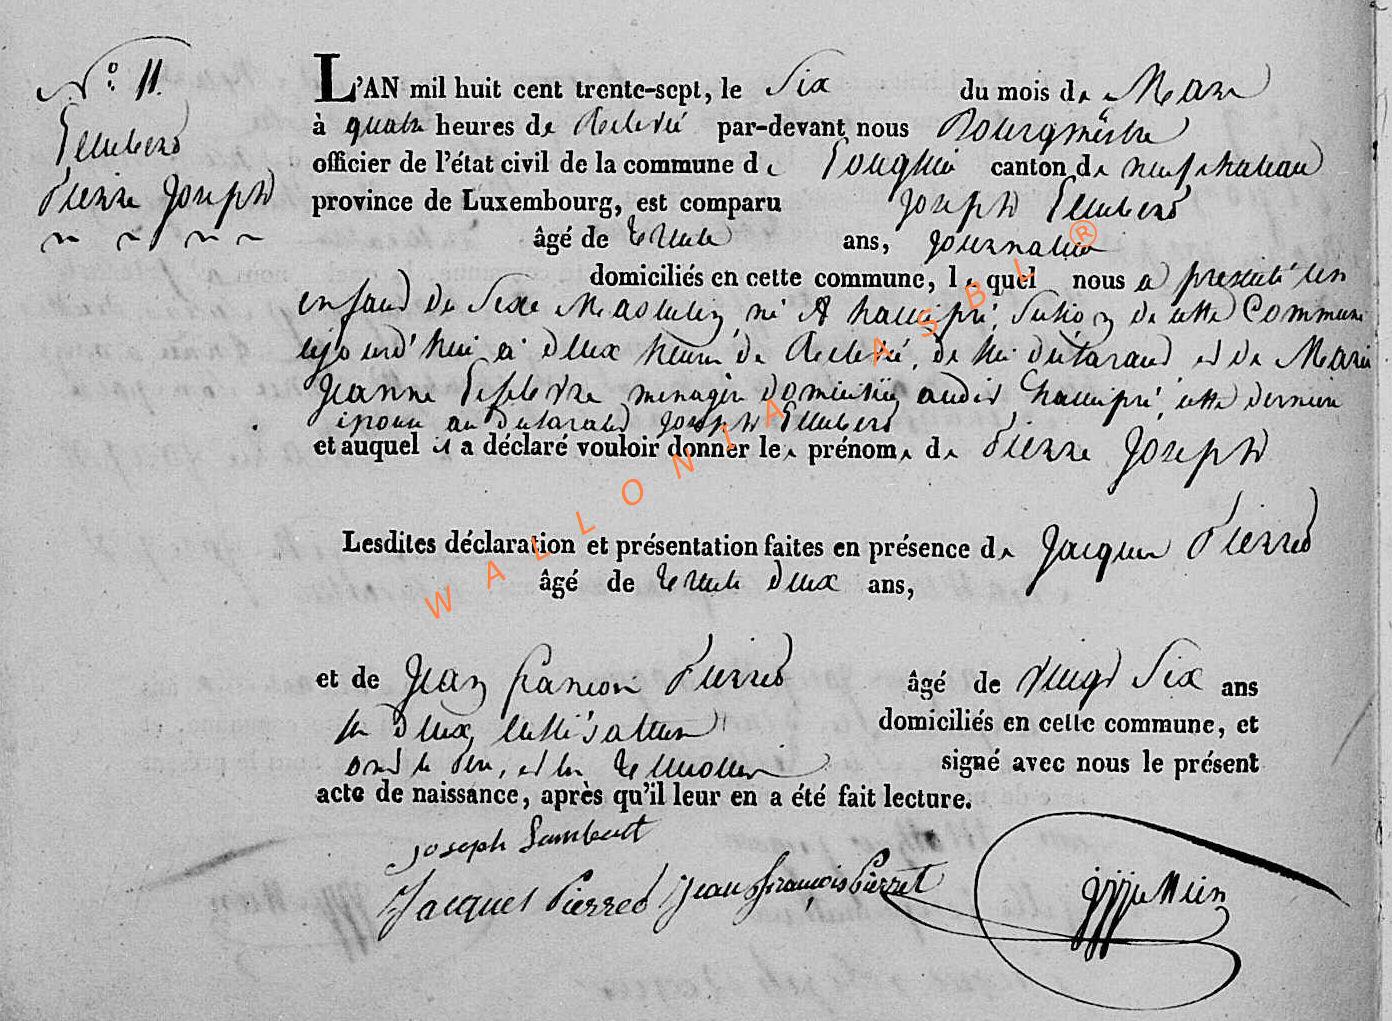 N.º 11.
Lambert
Pierre Joseph
L'AN mil huit cent trente-sept, le Six du mois de Mars
à quatre heures de Relevée par-devant nous Bourgmestre
officier de l'état civil de la commune de Longlier canton de neufchateau
province de Luxembourg, est comparu Joseph Lambert
âgé de trente ans, journalier
domiciliés en cette commune, lequel nous a presenté un
enfant du Sexe Masculin, né A hamipré, Section de cette Commune
aujourd'hui à deux heures de Relevée, de lui déclarant et de Marie
Jeanne menagère domiciliée audit hamipré, cette derniere
épouse au déclarant Joseph Lambert
et auquel il a déclaré vouloir donner les prénoms de Pierre Joseph
Lesdites déclaration et présentation faites en présence de Jacques Pierret
âgé de trente deux ans,
et de Jean françois Pierret âgé de vingt Six ans
deux cultivateurs domiciliés en cette commune, et
ont le Père, et les temoins signé avec nous le présent
acte de naissance, après qu'il leur en a été fait lecture.
Joseph Lambert
Jacques Pierret Jean françois Pierret
WALLONIA ASBL ®